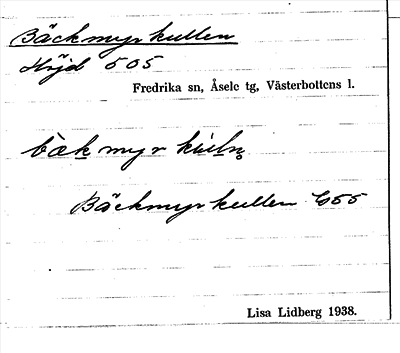 Bäckmyrkullen
Höjd 505
Fredrika sn, Åsele tg, Västerbottens l.
bæ̀k myr kùln̥
Bäckmyrkullen G55
Lisa Lidberg 1938.